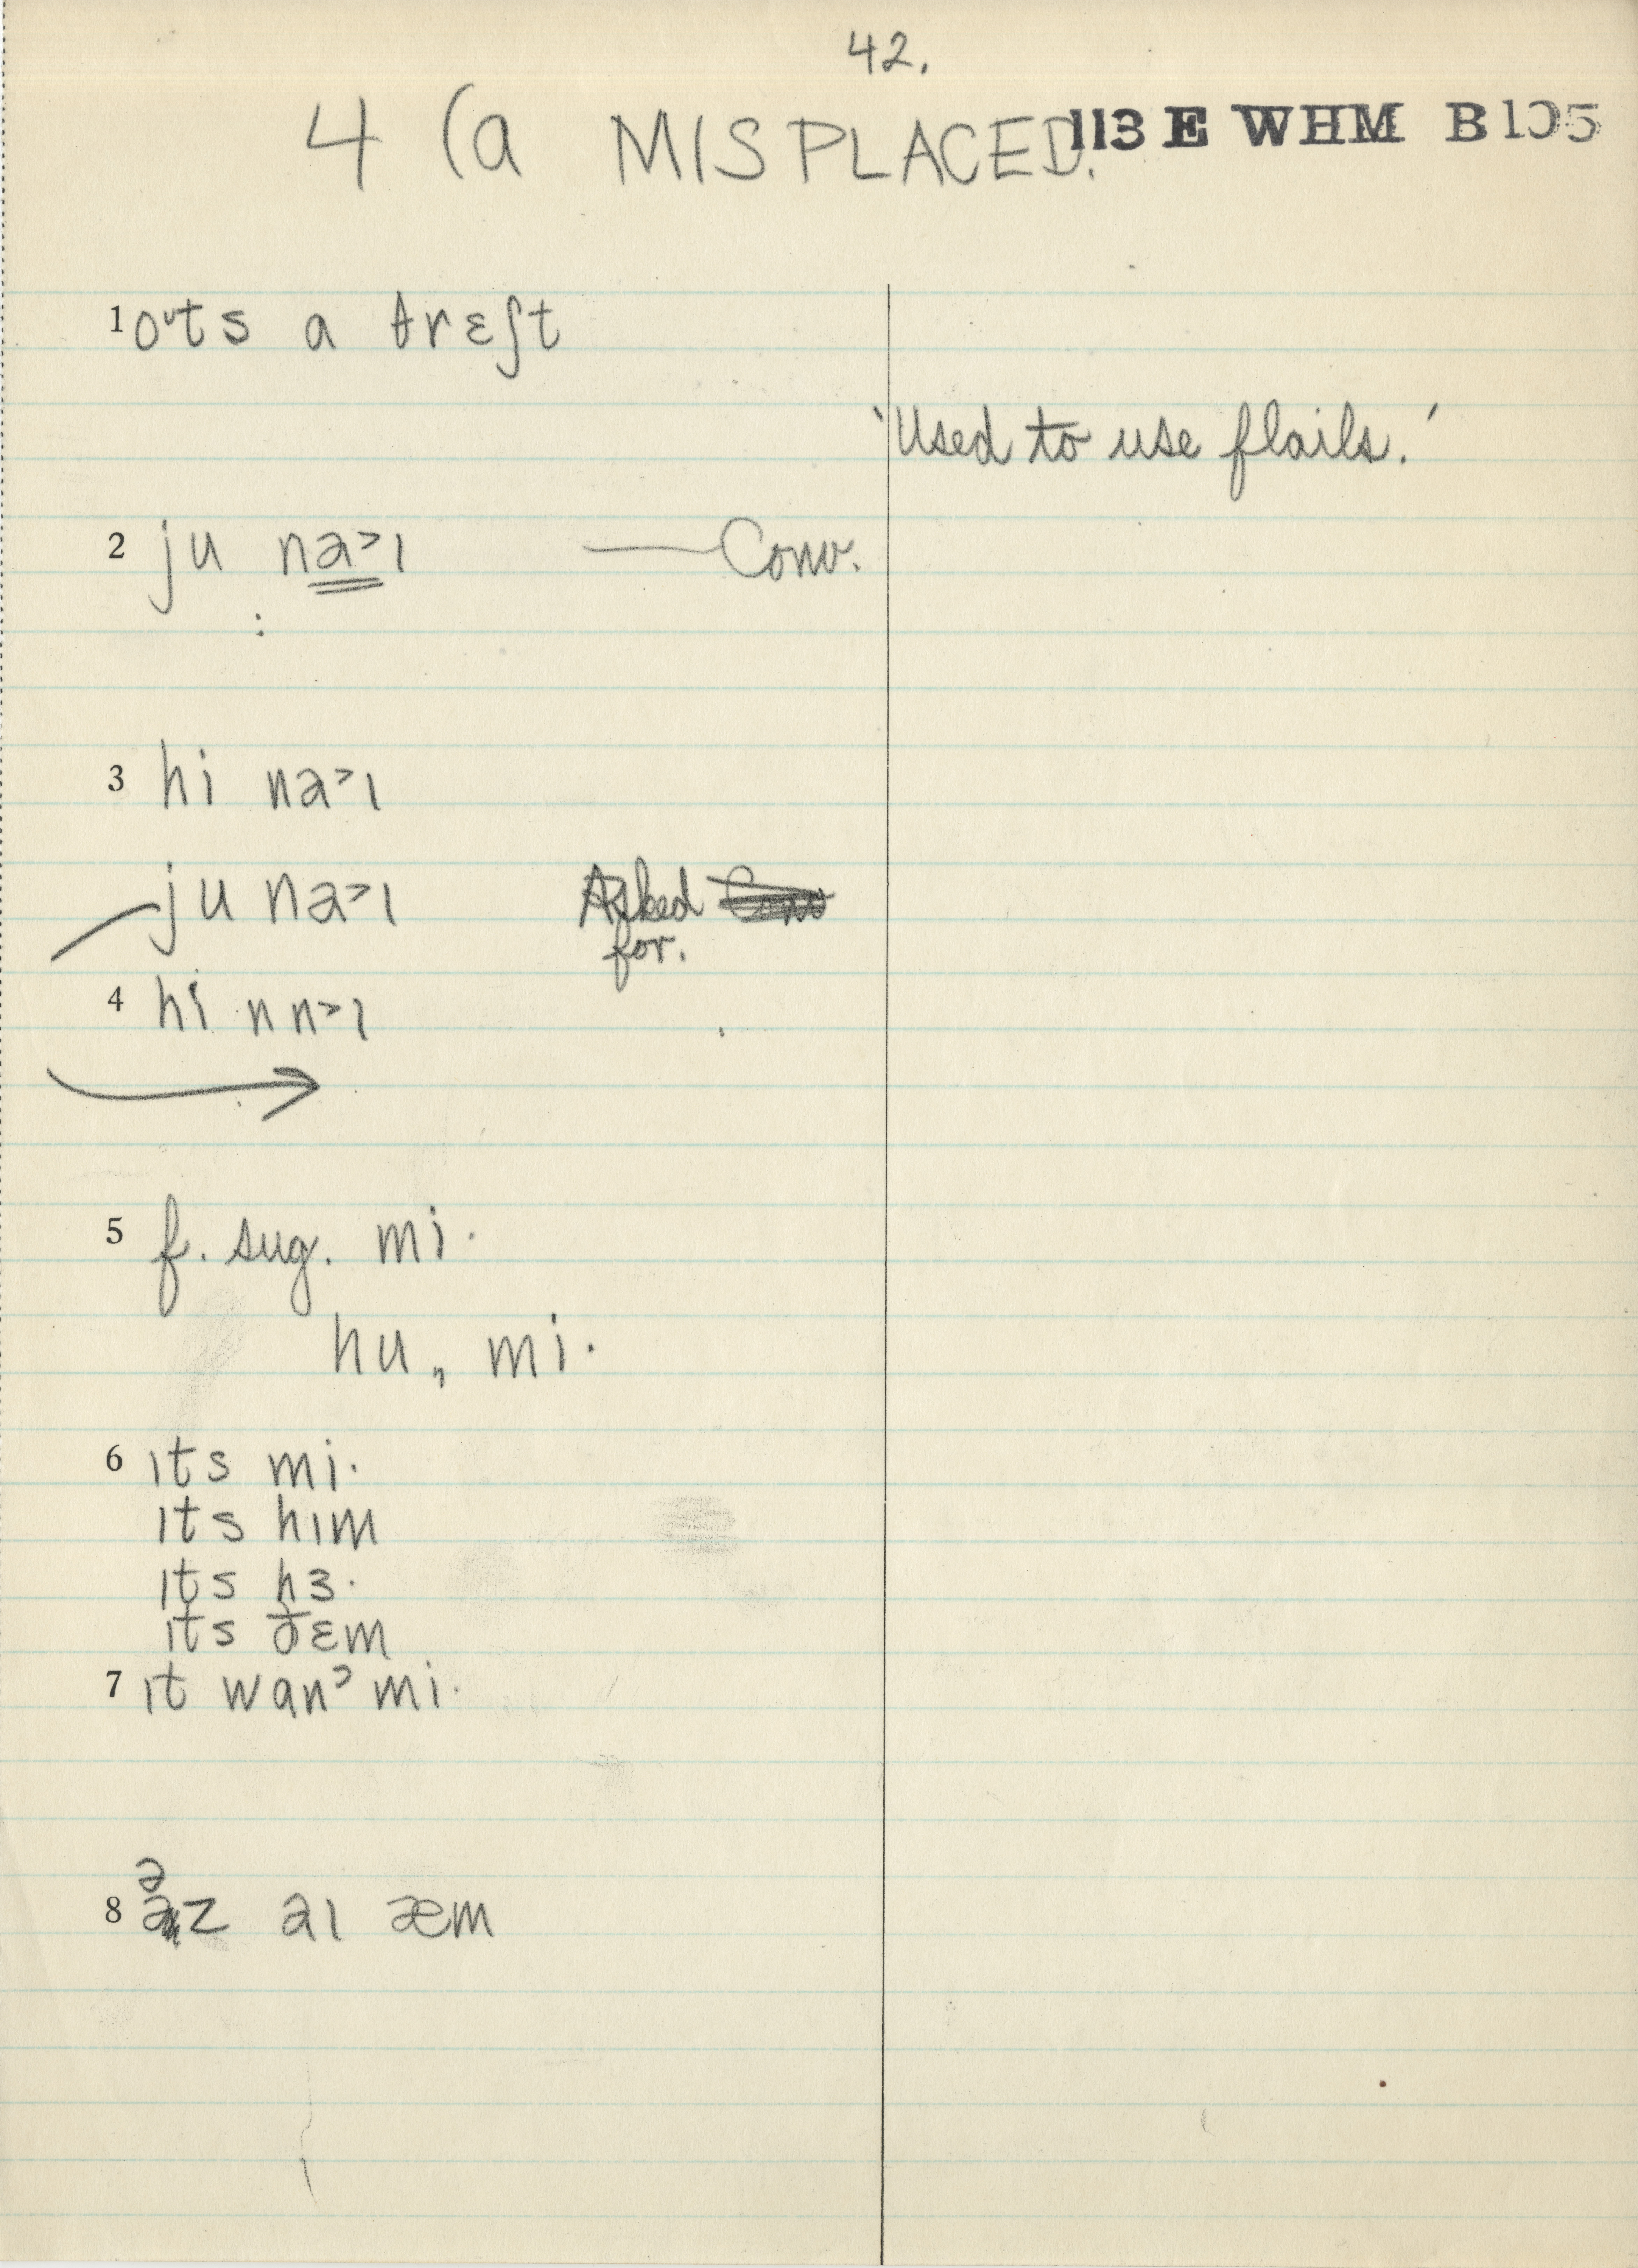 42.
4 (a MISPLACED. 113 E WHM B105
1 oᵘts a θrɛʃt
'Used to use flails.'
2 ju na>ɪ — Conv.
:
3 hi na>ɪ
ju na>ɪ Asked
for.
4 hi nn>ɪ
5 f. sug. mi·
hu, mi·
6 ɪts mi·
ɪts hɪm
ɪts hɜ·
ɪts ðɛm
7 ɪt wanˀ mi·
ə
8 az aɪ æm